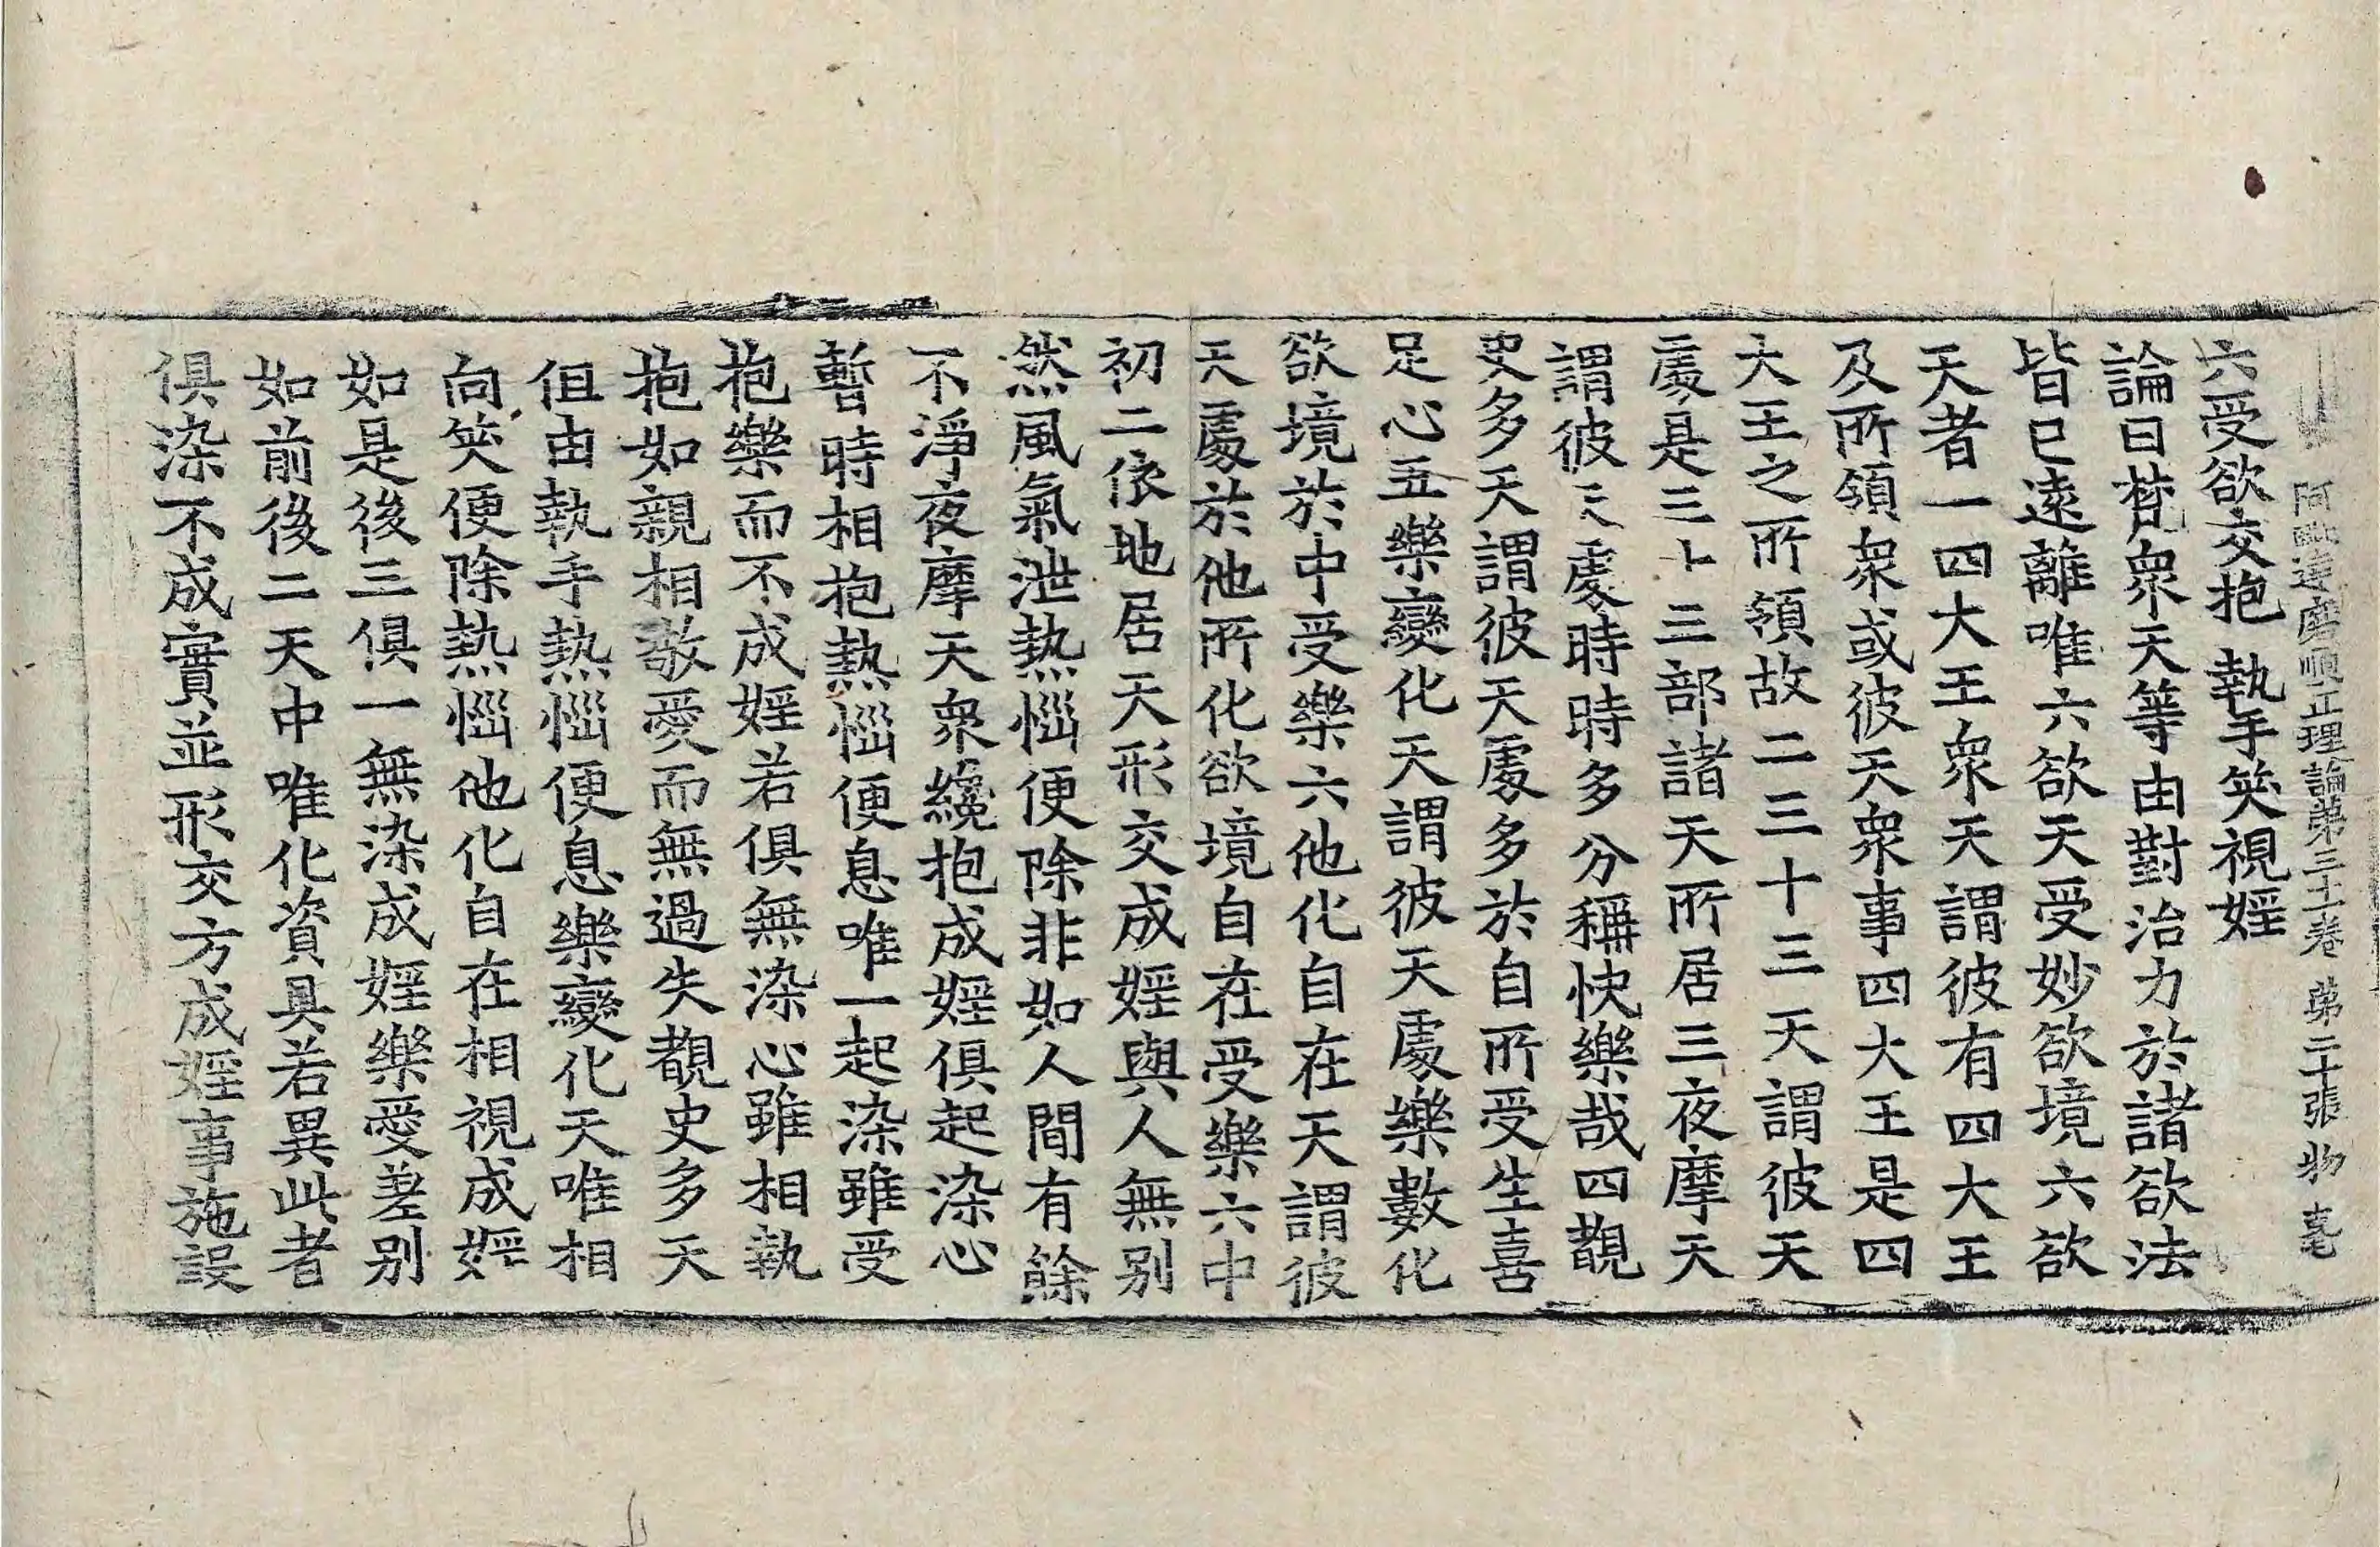 阿毗達磨順正理論第三十一卷 第二十張 物
六受欲交抱 執手笑視婬
論曰梵衆天等由對治力於諸欲法
皆已遠離唯六欲天受妙欲境六欲
天者一四大王衆天謂彼有四大王
及所領衆或彼天衆事四大王是四
大王之所領故二三十三天謂彼天
處是三十三部諸天所居三夜摩天
謂彼天處時時多分稱快樂哉四覩
史多天謂彼天處多於自所受生喜
足心五樂變化天謂彼天處樂數化
欲境於中受樂六他化自在天謂彼
天處於他所化欲境自在受樂六中
初二依地居天形交成婬與人無別
然風氣泄熱惱便除非如人間有餘
不淨夜摩天衆纔抱成婬俱起染心
暫時相抱熱惱便息唯一起染雖受
抱樂而不成婬若俱無染心雖相執
抱如親相敬愛而無過失覩史多天
但由執手熱惱便息樂變化天唯相
向笑便除熱惱他化自在相視成婬
如是後三俱一無染成婬樂愛差別
如前後二天中唯化資具若異此者
俱染不成實並形交方成婬事施設